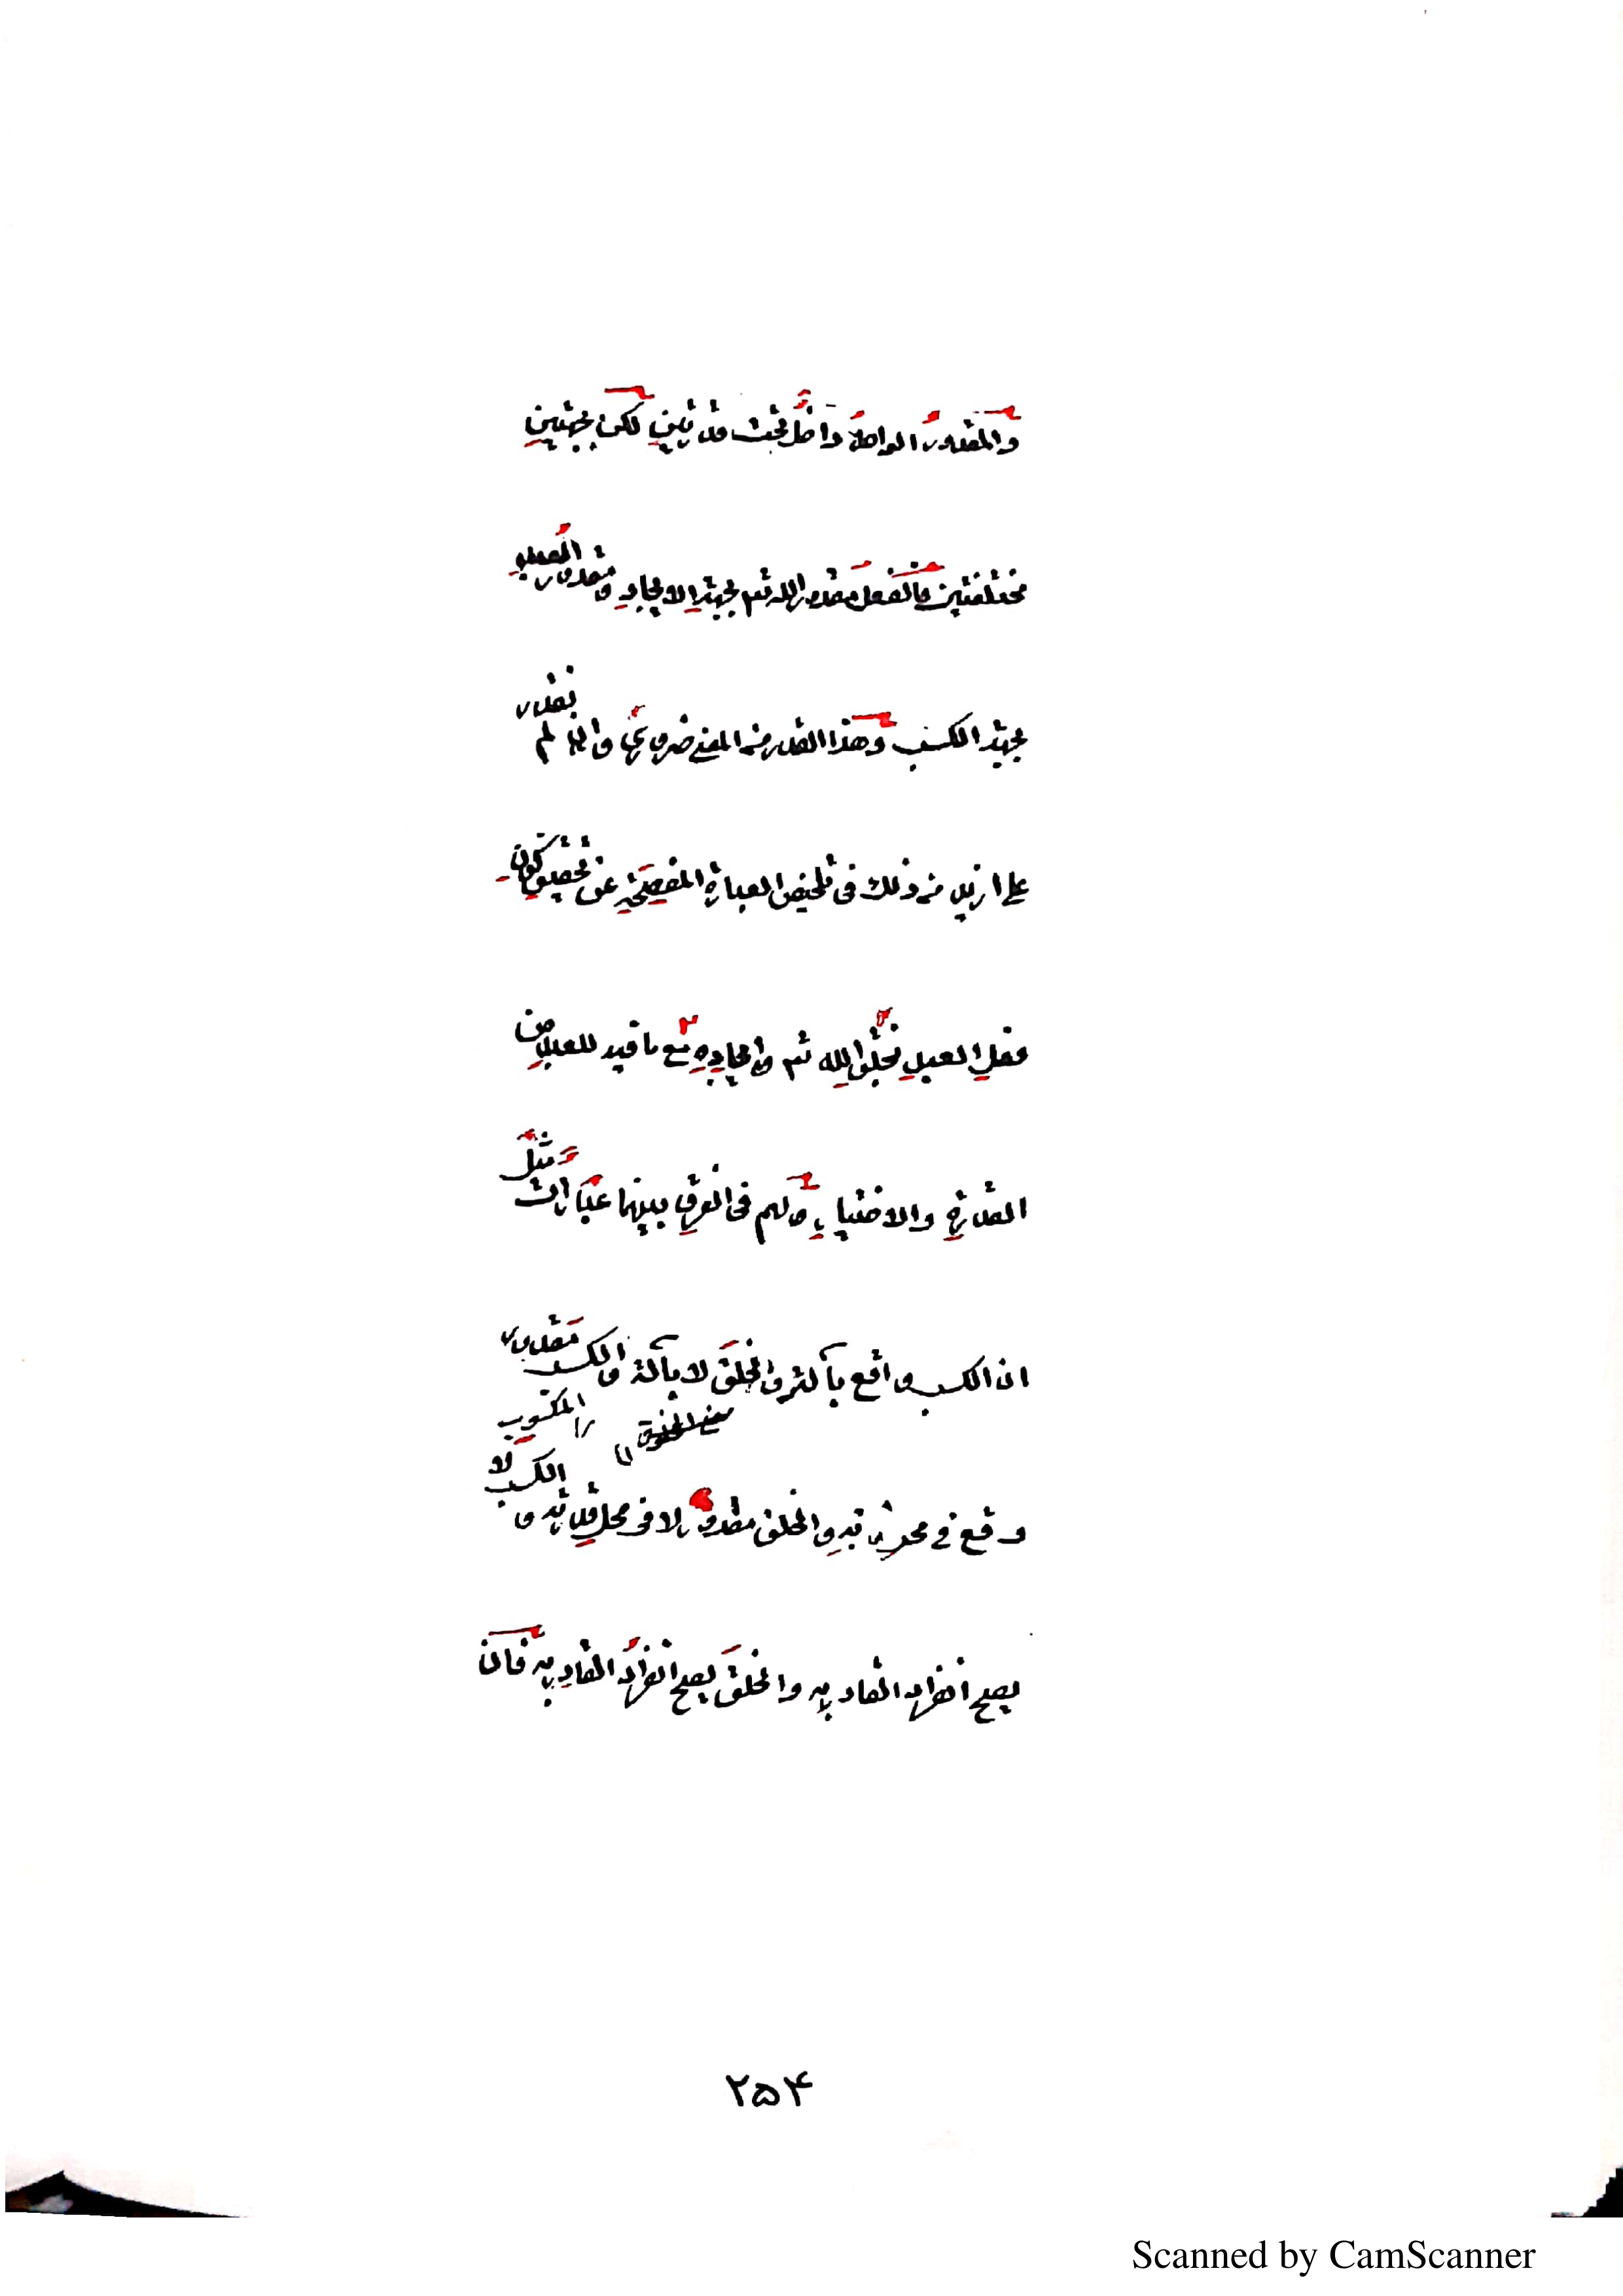 والمقدور الواحد داخل تحت قدرتين لكن بجهتين
مختلفتين فالفعل مقدور الله تعم بجهة الايجاد و مقدور العبد
بجهة الكسب وهذا القدر من المعنى ضروري وان لم نقدر
على ازيد من ذلك فى تلخيص العبارة المفصحة عن تحقيق كون
فعل العبد بخلق الله تعم وايجاده مع ما فيه للعبد من
القدرة والاختيار ولهم فى الفرق بينهما عبارات مثل
ان الكسب واقع بآلة والخلق لا بآلة والكسب مقدور
المكسوب
وقع فى محل قدرته والخلق مقدور لا فى محل قدرته و الكسب لا
يصح انفراد القادر به والخلق يصح انفراد القادر به فان
۲۵۴
Scanned by CamScanner